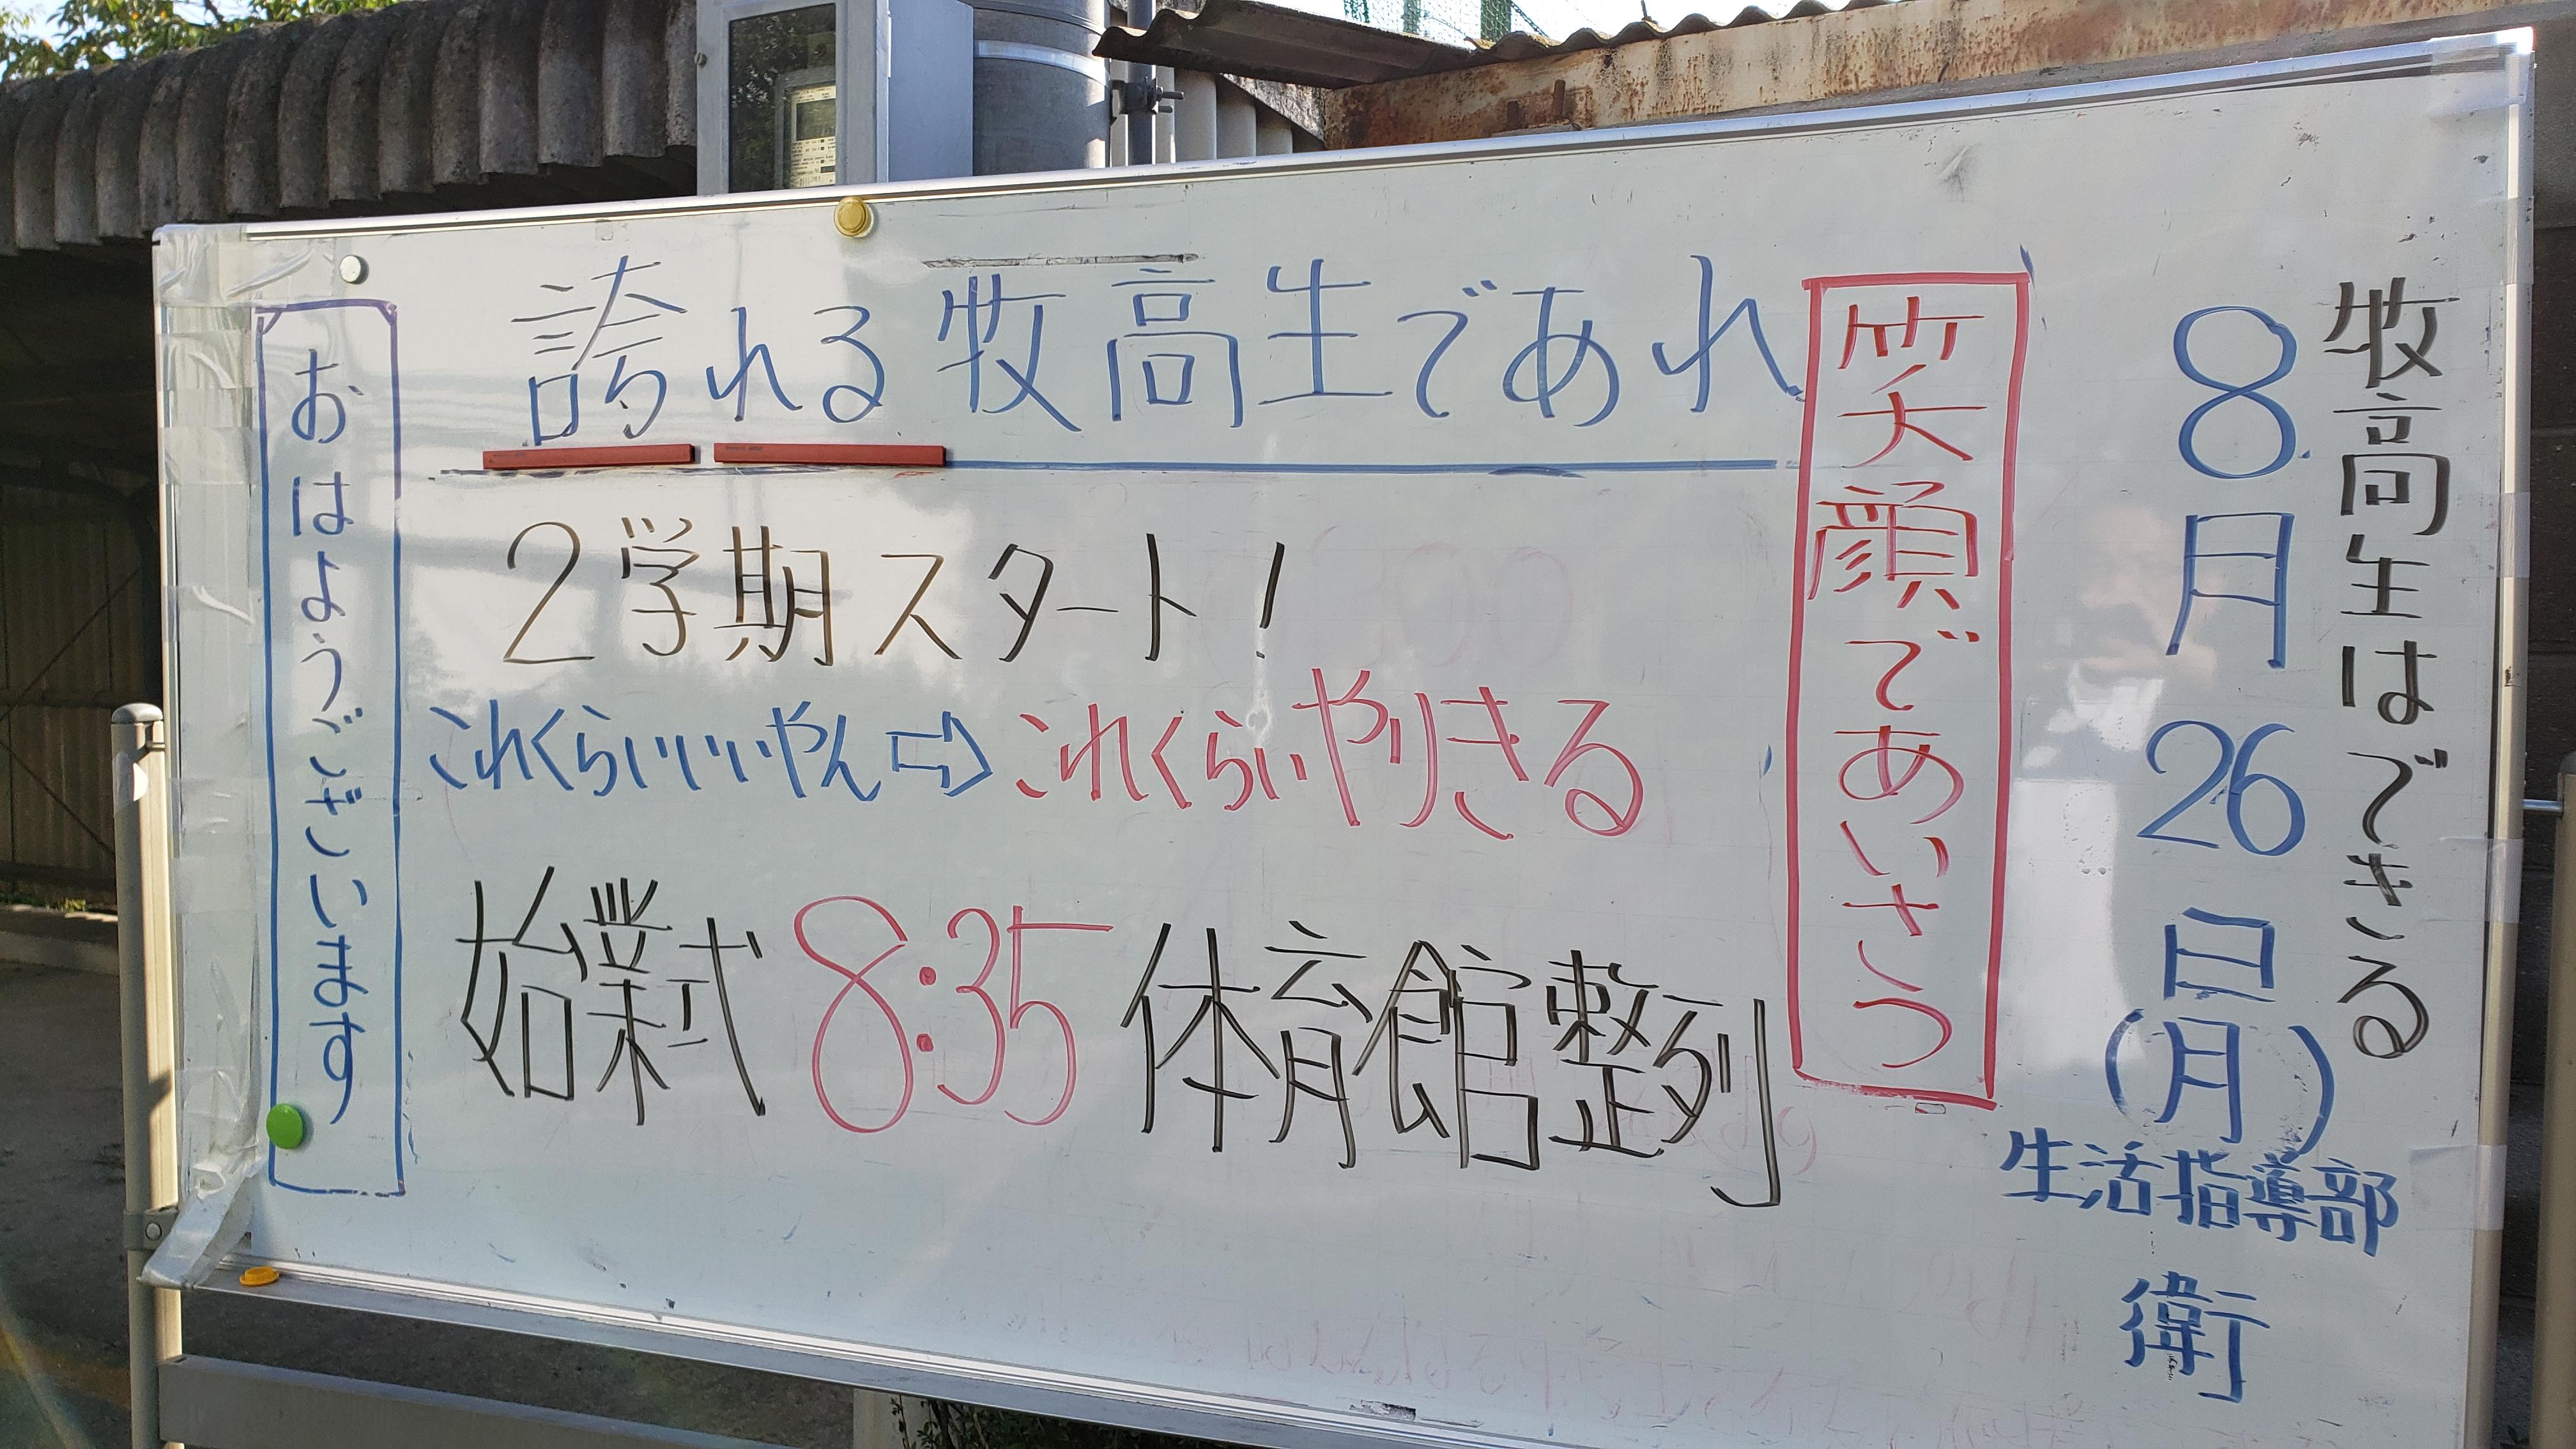 牧高生はできる
8月26日(月)
生活指導部
衛
笑顔であいさつ
誇れる牧高生であれ
2学期スタート!
これくらいいいやん⇨これくらいやりきる
始業式8:35体育館整列
おはようございます